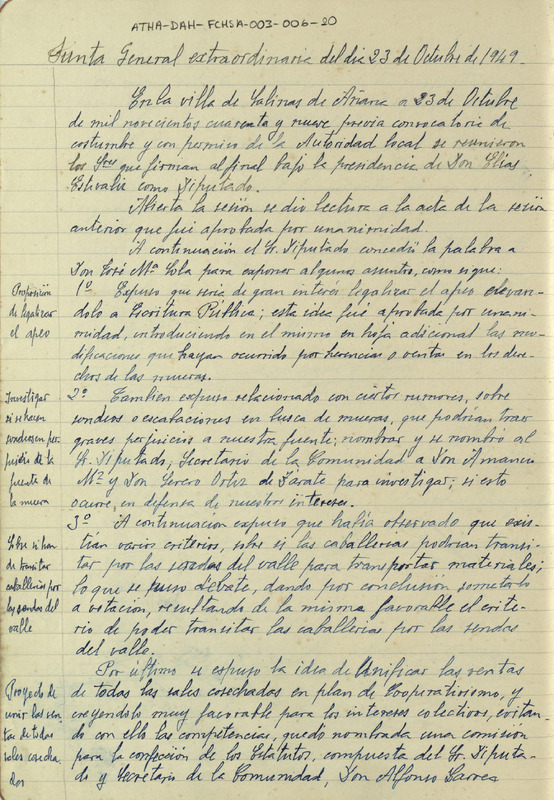 ATHA-DAH-FCHSA-003-006-20
Junta General extraordinaria del dia 23 de Octubre de 1949
En la villa de Salinas de Añana a 23 de Octubre
de mil novecientos cuarenta y nueve previa convocatoria de
costumbre y con permiso de la Autoridad local se reunieron
los Sres que firman al final bajo la presidencia de Don Elias
Estivaliz como Diputado.
Abierta la sesión se dio lectura a la acta de la sesión
anterior que fué aprobada por unanimidad.
A continuación el Sr. Diputado concedió la palabra a
Don José Mª Sola para exponer algunos asuntos, como sigue:
Proposición
de legalizar
el apeo
1º Expuso que seria de gran interés legalizar el apeo elevan-
dolo a Escritura Pública; esta idea fué aprobada por unani-
midad, introduciendo en el mismo en hoja adicional las mo-
dificaciones que hayan ocurrido por herencias o ventas en los dere-
chos de las mueras.
Investigar
si se hacen
sondeos en per-
juicio de la
fuente de
la muera
2º Tambien expuso relacionado con ciertos rumores, sobre
sondeos o escabaciones en busca de mueras, que podrian traer
graves perjuicios a nuestra fuente; nombrar y se nombró al
Sr. Diputado, Secretario de la Comunidad a Don Amancio
Mª y Don Serero Ortiz de Zarate para investigar; si esto
ocurre, en defensa de nuestros intereses.
Sobre si han
de transitar
caballerias por
las sendas del
valle
3º A continuacion expuso que había observado que exis-
tían varios criterios, sobre si las caballerias podrian transi-
tar por las sendas del valle para transportar materiales;
lo que se puso a debate, dando por conclusión someterlo
a votacion, resultando de la misma favorable el crite-
rio de poder transitar las caballerias por las sendas
del valle.
Proyecto de
unir las ven-
tas de todas
sales cosecha-
das
Por último se expuso la idea de Unificar las ventas
de todas las sales cosechadas en plan de Cooperativismo, y
creyendolo muy favorable para los intereses colectivos, evitan-
do con ello las competencias, quedo nombrada una comision
para la confección de los Estatutos, compuesta del Sr. Diputa-
do y Secretario de la Comunidad, Don Alfonso Larrea